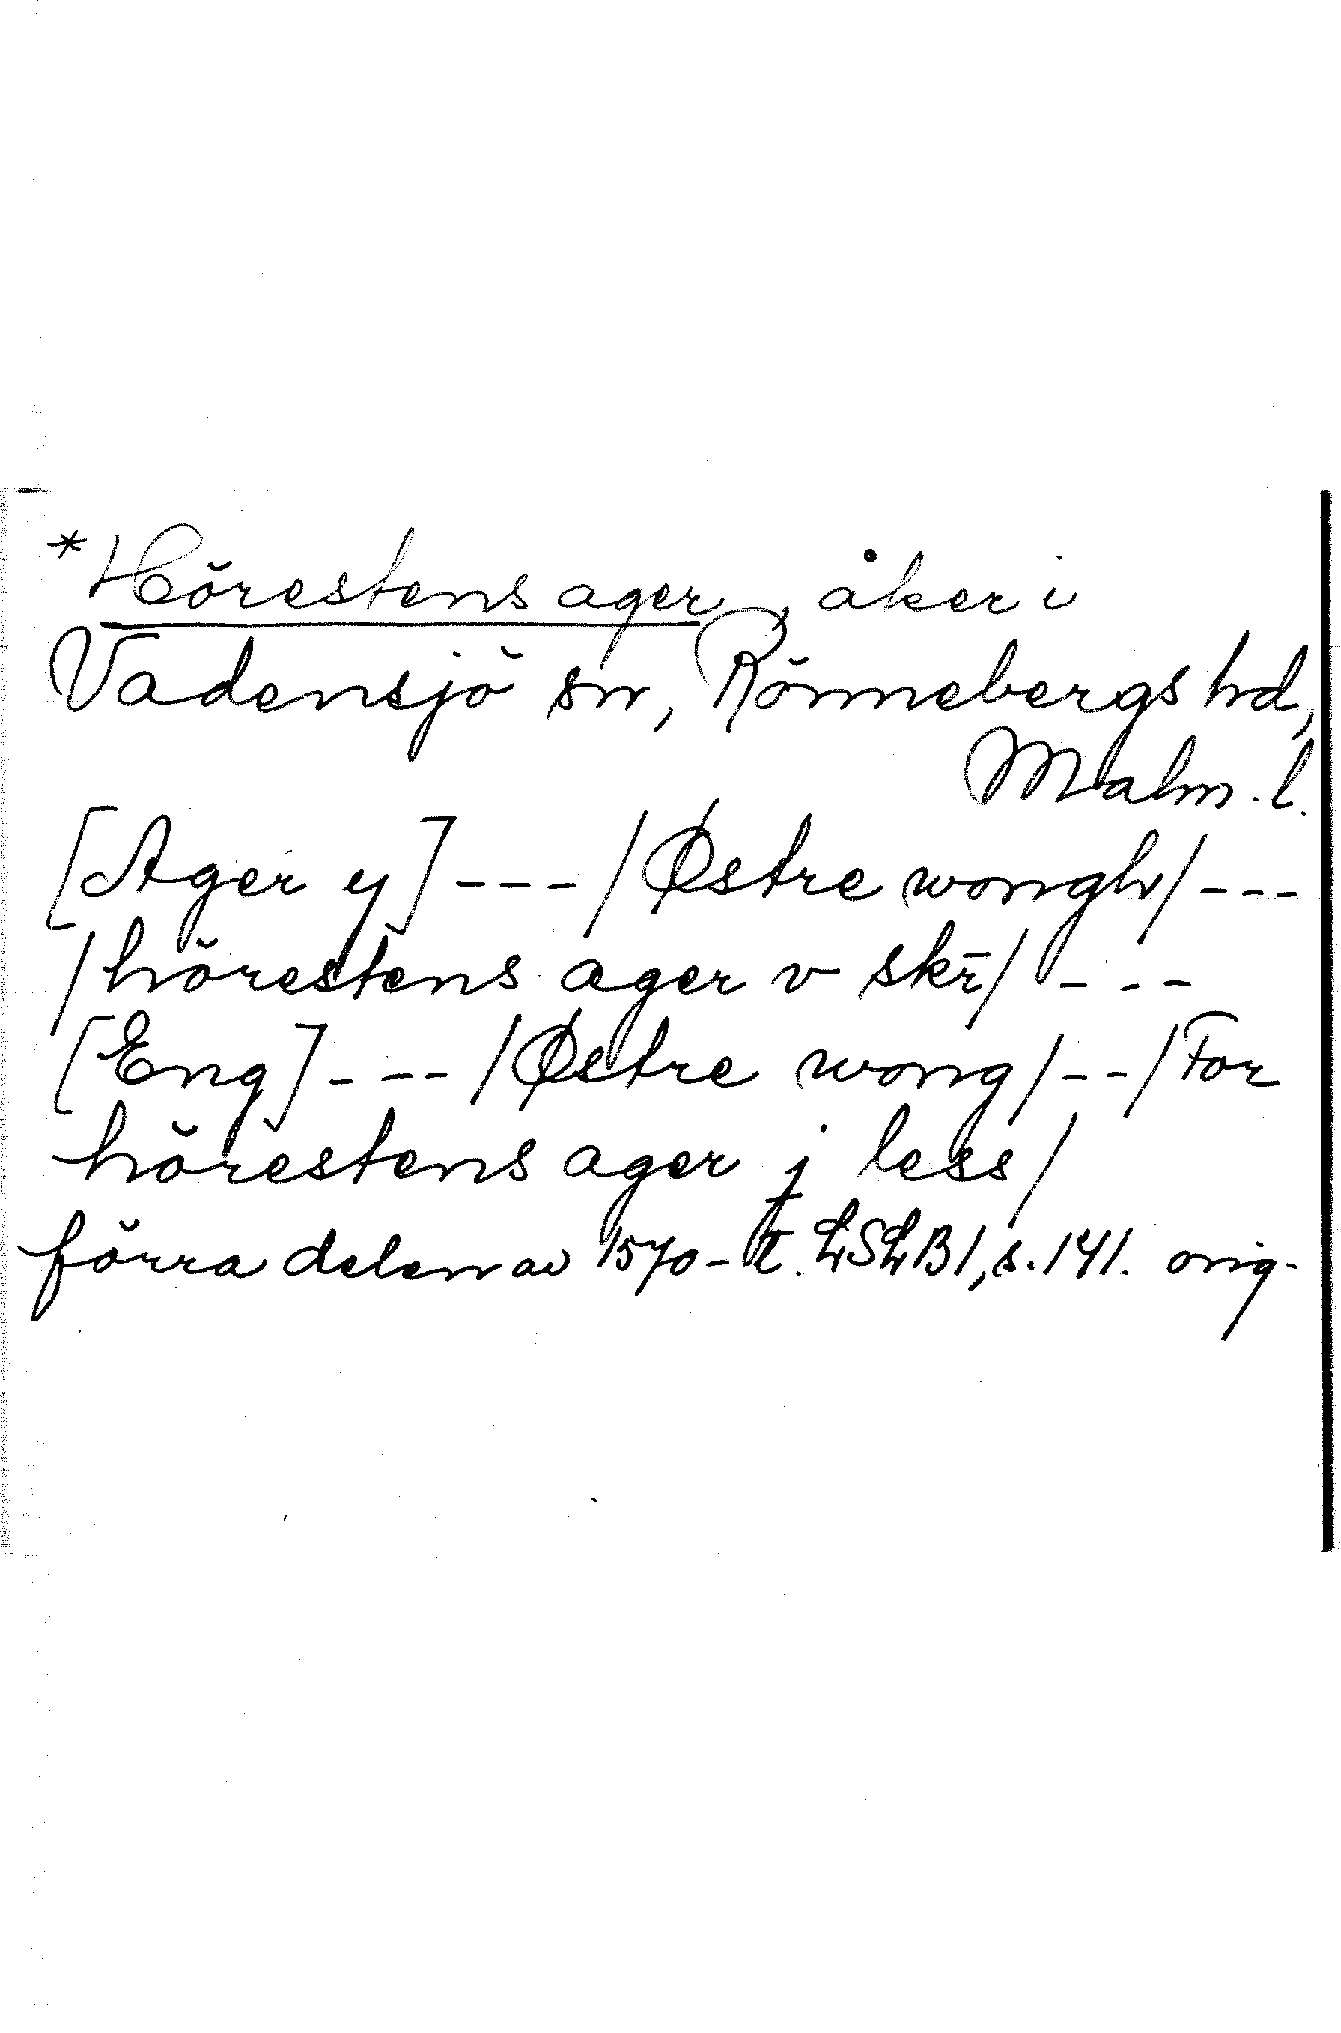 *Hörestens ager, åker i
Vadensjö sn, Rönnebergs hd,
Malm. l.
[Ager y] --- /Østre wongh/ ---
/hörestens ager v skr̄/ - - -
[Eng] --- /Østre wong/ -- /For
hörestens ager j less/
förra delen av 1570-t. LSLB1, s. 141. orig.